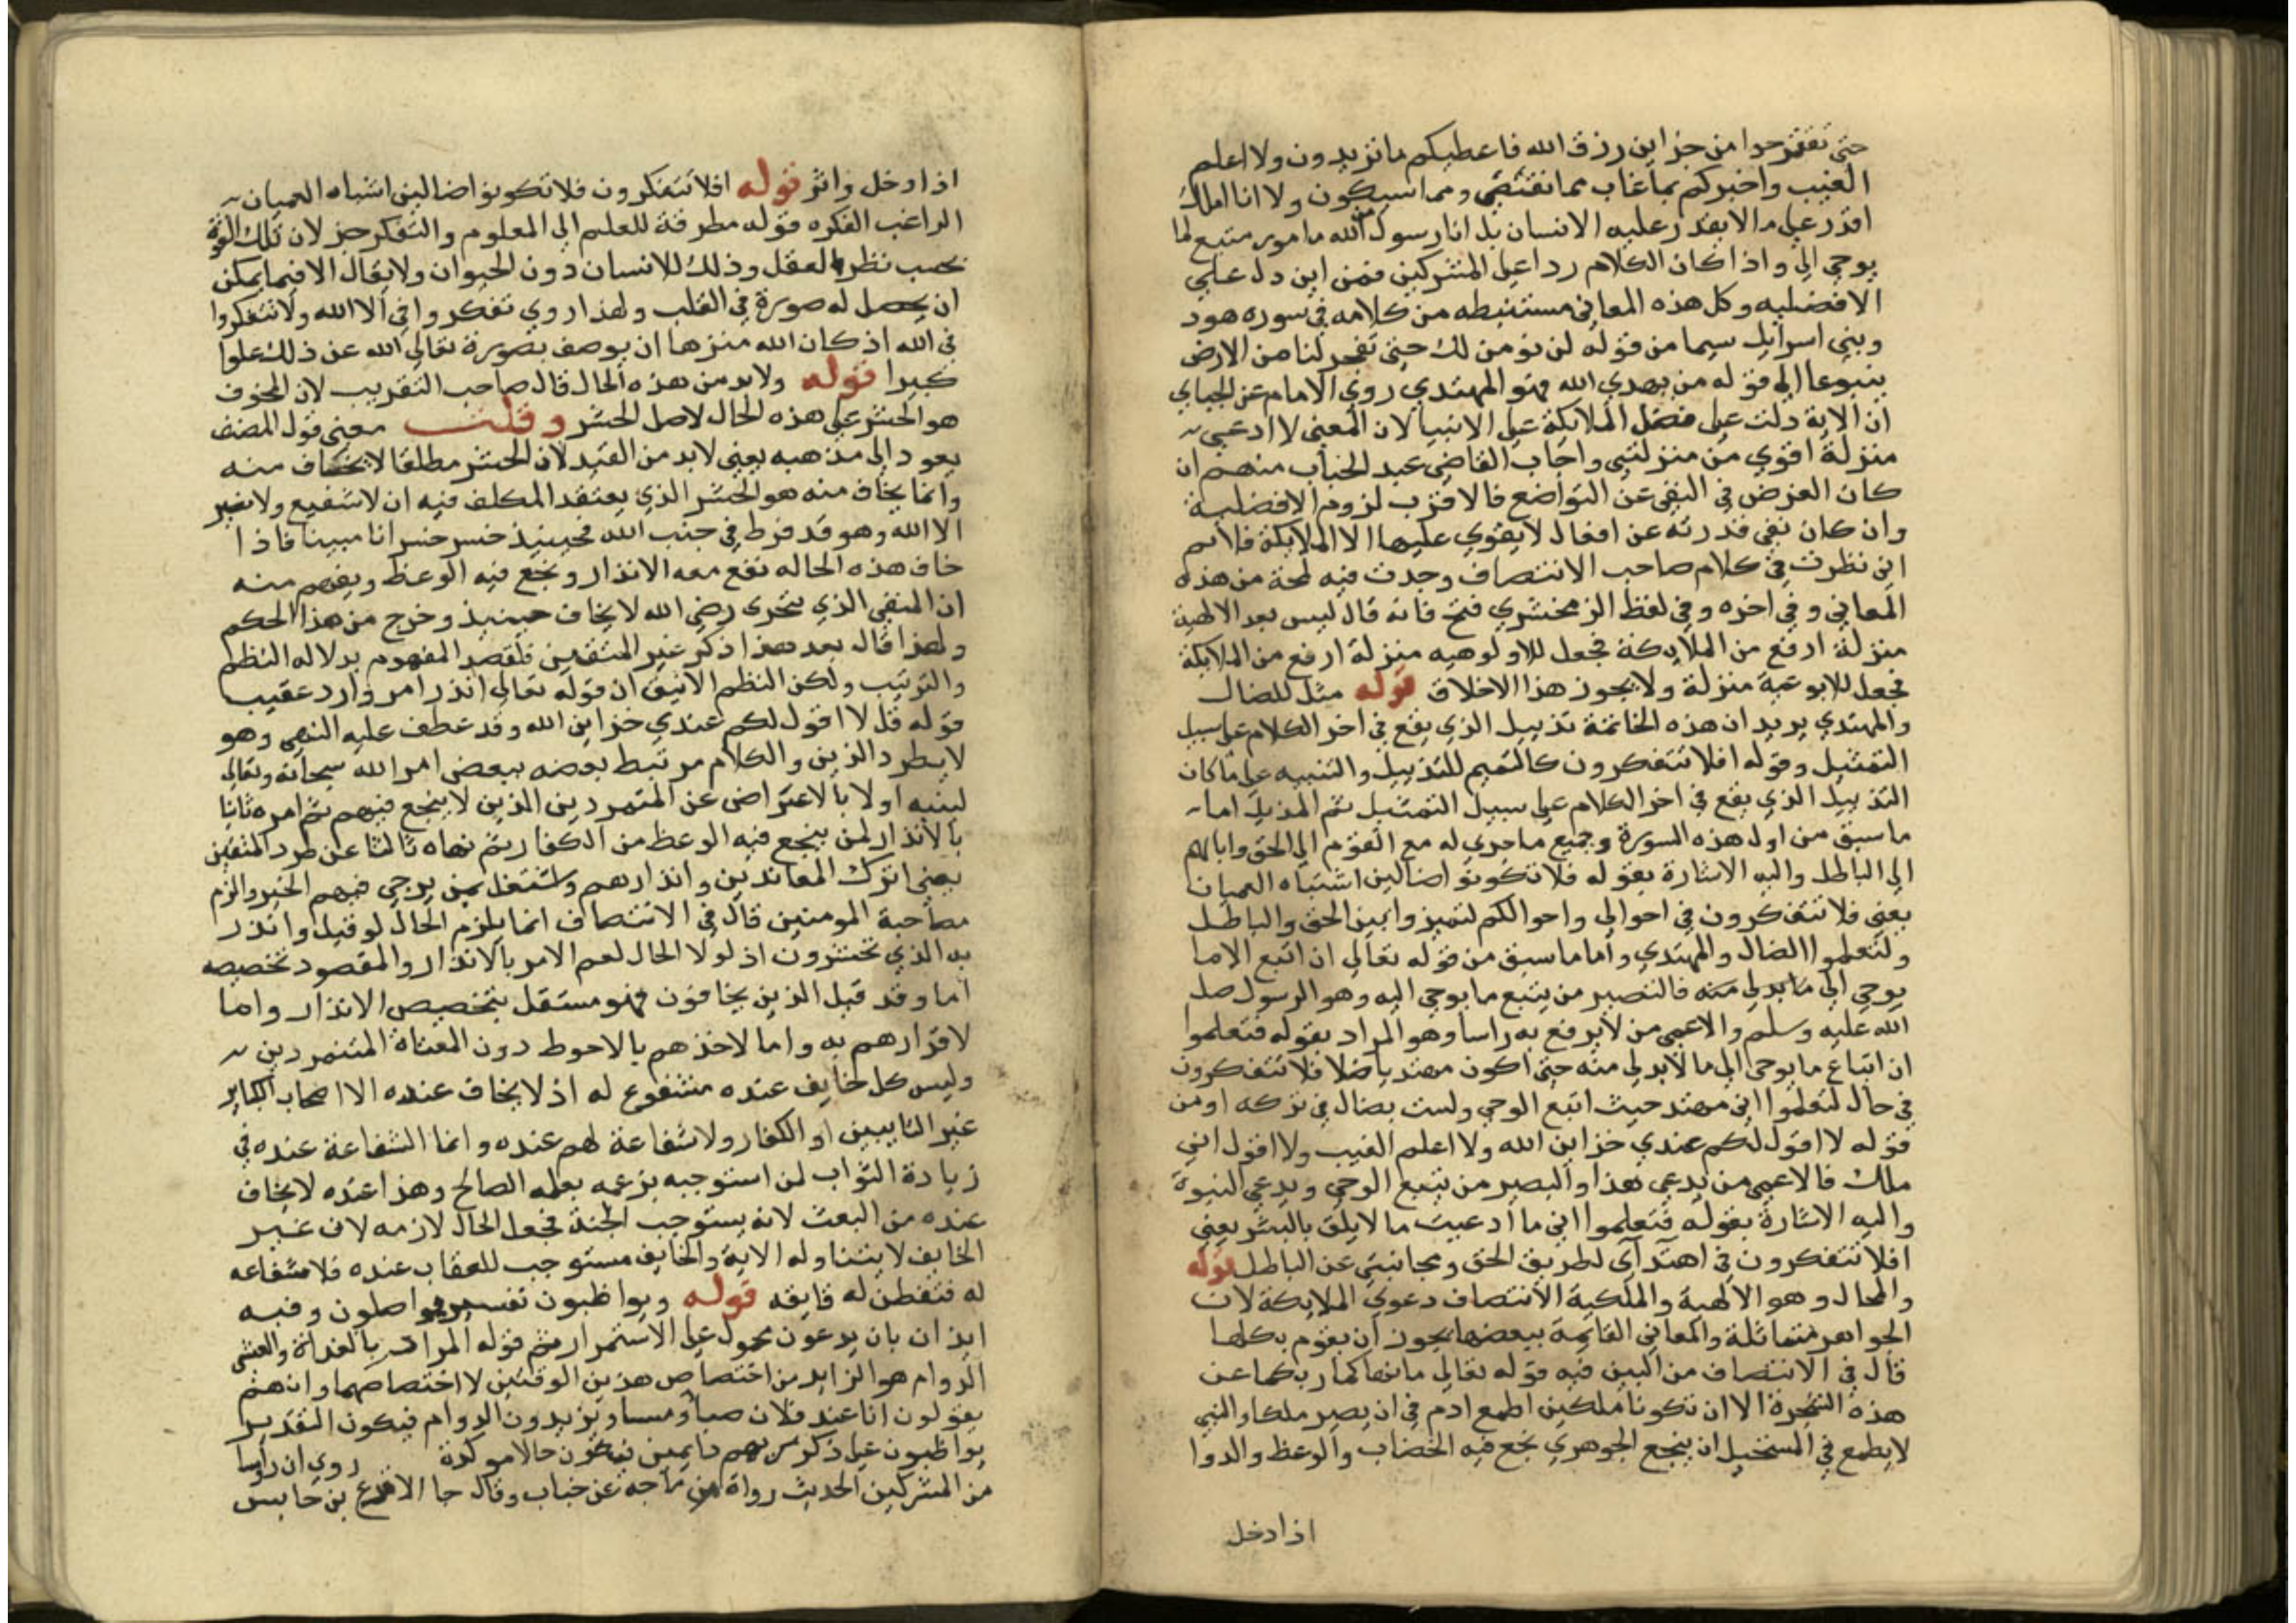 حتى تقترحوا من خزاين رزق الله فاعطيكم ما تزيدون ولا اعلم
الغيب واخبركم بما غاب مما نقتضى ومما سيكون ولا انا املك
اقدر على ما لا يقدر عليه الانسان بل انا رسول من الله مامور متبع لما
يوحي الي واذا كان الكلام ردا على المشركين فمن اين دل علي
الافضليه وكل هذه المعاني مستنبطه من كلامه في سوره هود
وبني اسرايل سيما من قوله لن نومن لك حتى تفجر لنا من الارض
ينبوعا الي قوله من يهدي الله فهو المهتدي روي الامام عن الجبايي
ان الاية دلت علي فضل الملايكة علي الانبيا لان المعني لا ادعي
منزلة اقوي من منزلتي واجاب القاضي عبد الجباب منهم ان
كان الغرض في النفي عن التواضع فالاقرب لزوم الافضلية
وان كان نفي قدرته عن افعال لا يقوي عليها الا الملايكة فلا ثم
اني نظرت في كلام صاحب الانتصاف وجدت فيه لمحة من هذه
المعاني وفي اخره وفي لفظ الزمخشري فتح فانه قال ليس بعد الالهية
منزلة ارفع من الملايكة فجعل للاولوهيه منزلة ارفع من الملايكة
فجعل للابوعية منزلة ولا يجوز هذا الاخلاق قوله مثل للضال
والمهتدي يريد ان هذه الخاتمة تذييل الذي يقع في اخر الكلام على سبيل
التمثيل وقوله افلا تتفكرون كالتميم للتذييل والتنبيه على ما كان
التذييل الذي يقع في اخر الكلام علي سبيل التمثيل ثم المذيل اما
ما سبق من اول هذه السورة وجميع ما جري له مع القوم الي الحق وايالهم
الي الباطل واليه الاشارة بقوله فلا تكونوا ضالين اشتباه العميان
يعني فلا تتفكرون في احوالي واحوالكم لتميزوا بين الحق والباطل
ولتعلموا الضال والمهتدي واما ما سبق من قوله تعالي ان اتبع الا ما
يوحي الي ما بدلي منه فالنصير من يتبع ما يوحي اليه وهو الرسول صل
الله عليه وسلم والاعمى من لا يرفع به راسا وهو المراد بقوله فتعلموا
ان اتباع ما يوحى الي ما لا بد لي منه حتى اكون مهتديا ضلا فلا تتفكرون
في حال لتعلموا اني مهتد حيث اتبع الوحي ولست بضال في تركه او من
قوله لا اقول لكم عندي خزاين الله ولا اعلم الغيب ولا اقول اني
ملك فالاعمى من يدعي هذا والبصير من يتبع الوحي ويدعي النبوة
واليه الاشارة بقوله فتعلموا اني ما ادعيت ما لا يلق بالبشر يعني
افلا تتفكرون في اهتدآي لطريق الحق ومجانبتي عن الباطل قوله
والمحال وهو الالهية والملكية الانتصاف دعوي الملايكة لان
الجواهر متماثلة والمعاني القايمة ببعضها يجوز ان يقوم بكلها
قال في الانتصاف من البين فيه قوله تعالي ما نهاكما ربكما عن
هذه الشجرة الا ان تكونا ملكين اطمع ادم في ان يصير ملكا والنبي
لا يطمع في المستحيل ان ينجع الجوهري نجع فيه الخضاب والوعظ والدوا
اذا دخل
اذا دخل واثر قوله افلا تتفكرون فلا تكونوا ضالين اشباه العميان
الراغب الفكره قوله مطرفة للعلم الي المعلوم والتفكر جز لان تلك القوة
بحسب نظر العقل وذلك للانسان دون الحيوان ولا يقال الا فيما يمكن
ان يحصل له صورة في القلب ولهذا روي تفكروا في الا الله ولا تتفكروا
في الله اذ كان الله منزها ان يوصف بصورة تعالي الله عن ذلك علوا
كبيرا قوله ولا بد من هذه الحال قال صاحب التقريب لان المخوف
هو الحشر على هذه الحال لا اصل الحشر وقلت معنى قول المصنف
يعود الي مذهبه يعني لا بد من القيد لان الحشر مطلقا لا يخاف منه
وانما يخاف منه هو الحشر الذي يعتقد المكلف فيه ان لا شفيع ولا نصير
الا الله وهو قد فرط في جنب الله فحينيذ خسر خسرانا مبينا فاذا
خاف هذه الحاله نفع معه الانذار ونجع فيه الوعظ ويفهم منه
ان المتقي الذي يتحرى رضي الله لا يخاف حينيذ وخرج من هذا الحكم
ولهذا قال بعد هذا ذكر غير المتقين فلقصد المفهوم بدلاله النظم
والترتيب ولكن النظم الانيق ان قوله تعالي انذر امر وارد عقيب
قوله قل لا اقول لكم عندي خزاين الله وقد عطف عليه النهي وهو
لا يطرد الذين والكلام مرتبط بعضه ببعض امر الله سبحانه وتعالي
لبنيه اولا بالاعتراض عن المتمردين الذين لا ينجع فيهم ثم امره ثانيا
بالانذار لمن ينجع فيه الوعظ من الكفار ثم نهاه ثالثا عن طرد المتقين
يعني اترك المعاندين وانذارهم واشتغل بمن يرجى فيهم الخير والزم
مصاحبة المومنين قال في الانتصاف انما يلزم الحال لو قيل وانذر
به الذي تحشرون اذ لولا الحال لعم الامر بالانذار والمقصود تخصيصه
اما وقد قبل الذين يخافون فهو مستقل بتخصيص الانذار واما
لاقرارهم به واما لاخذهم بالاحوط دون العتاة المتمردين
وليس كل خايف عنده مشفوع له اذ لا يخاف عنده الا اصحاب الكباير
غير التايبين او الكفار ولا شفاعة لهم عنده وانما الشفاعة عنده في
زيادة الثواب لمن استوجبه بزعمه بعمله الصالح وهذا عنده لا يخاف
عنده من البعث لانه يستوجب الجنة فجعل الحال لازمه لان غير
الخايف لا يتناوله الاية والخايف مستوجب للعقاب عنده فلا شفاعه
له فتفطن له فايقه قوله ويواظبون تفسير يواصلون وفيه
ايذان بان يدعون محول علي الاستمرار ثم قوله المراد بالغداة والعشي
الدوام هو الزايد من اختصاص هذين الوقتين لاختصاصهما وانهم
يقولون انا عند فلان صبا ومسا ويزيدون الدوام فيكون التقدير
يواظبون على ذكر ربهم دايمين فيكون حالا موكدة روي ان راسا
من المشركين الحديث رواه ابن ماجه عن خباب وقال جا الاقرع بن حابس